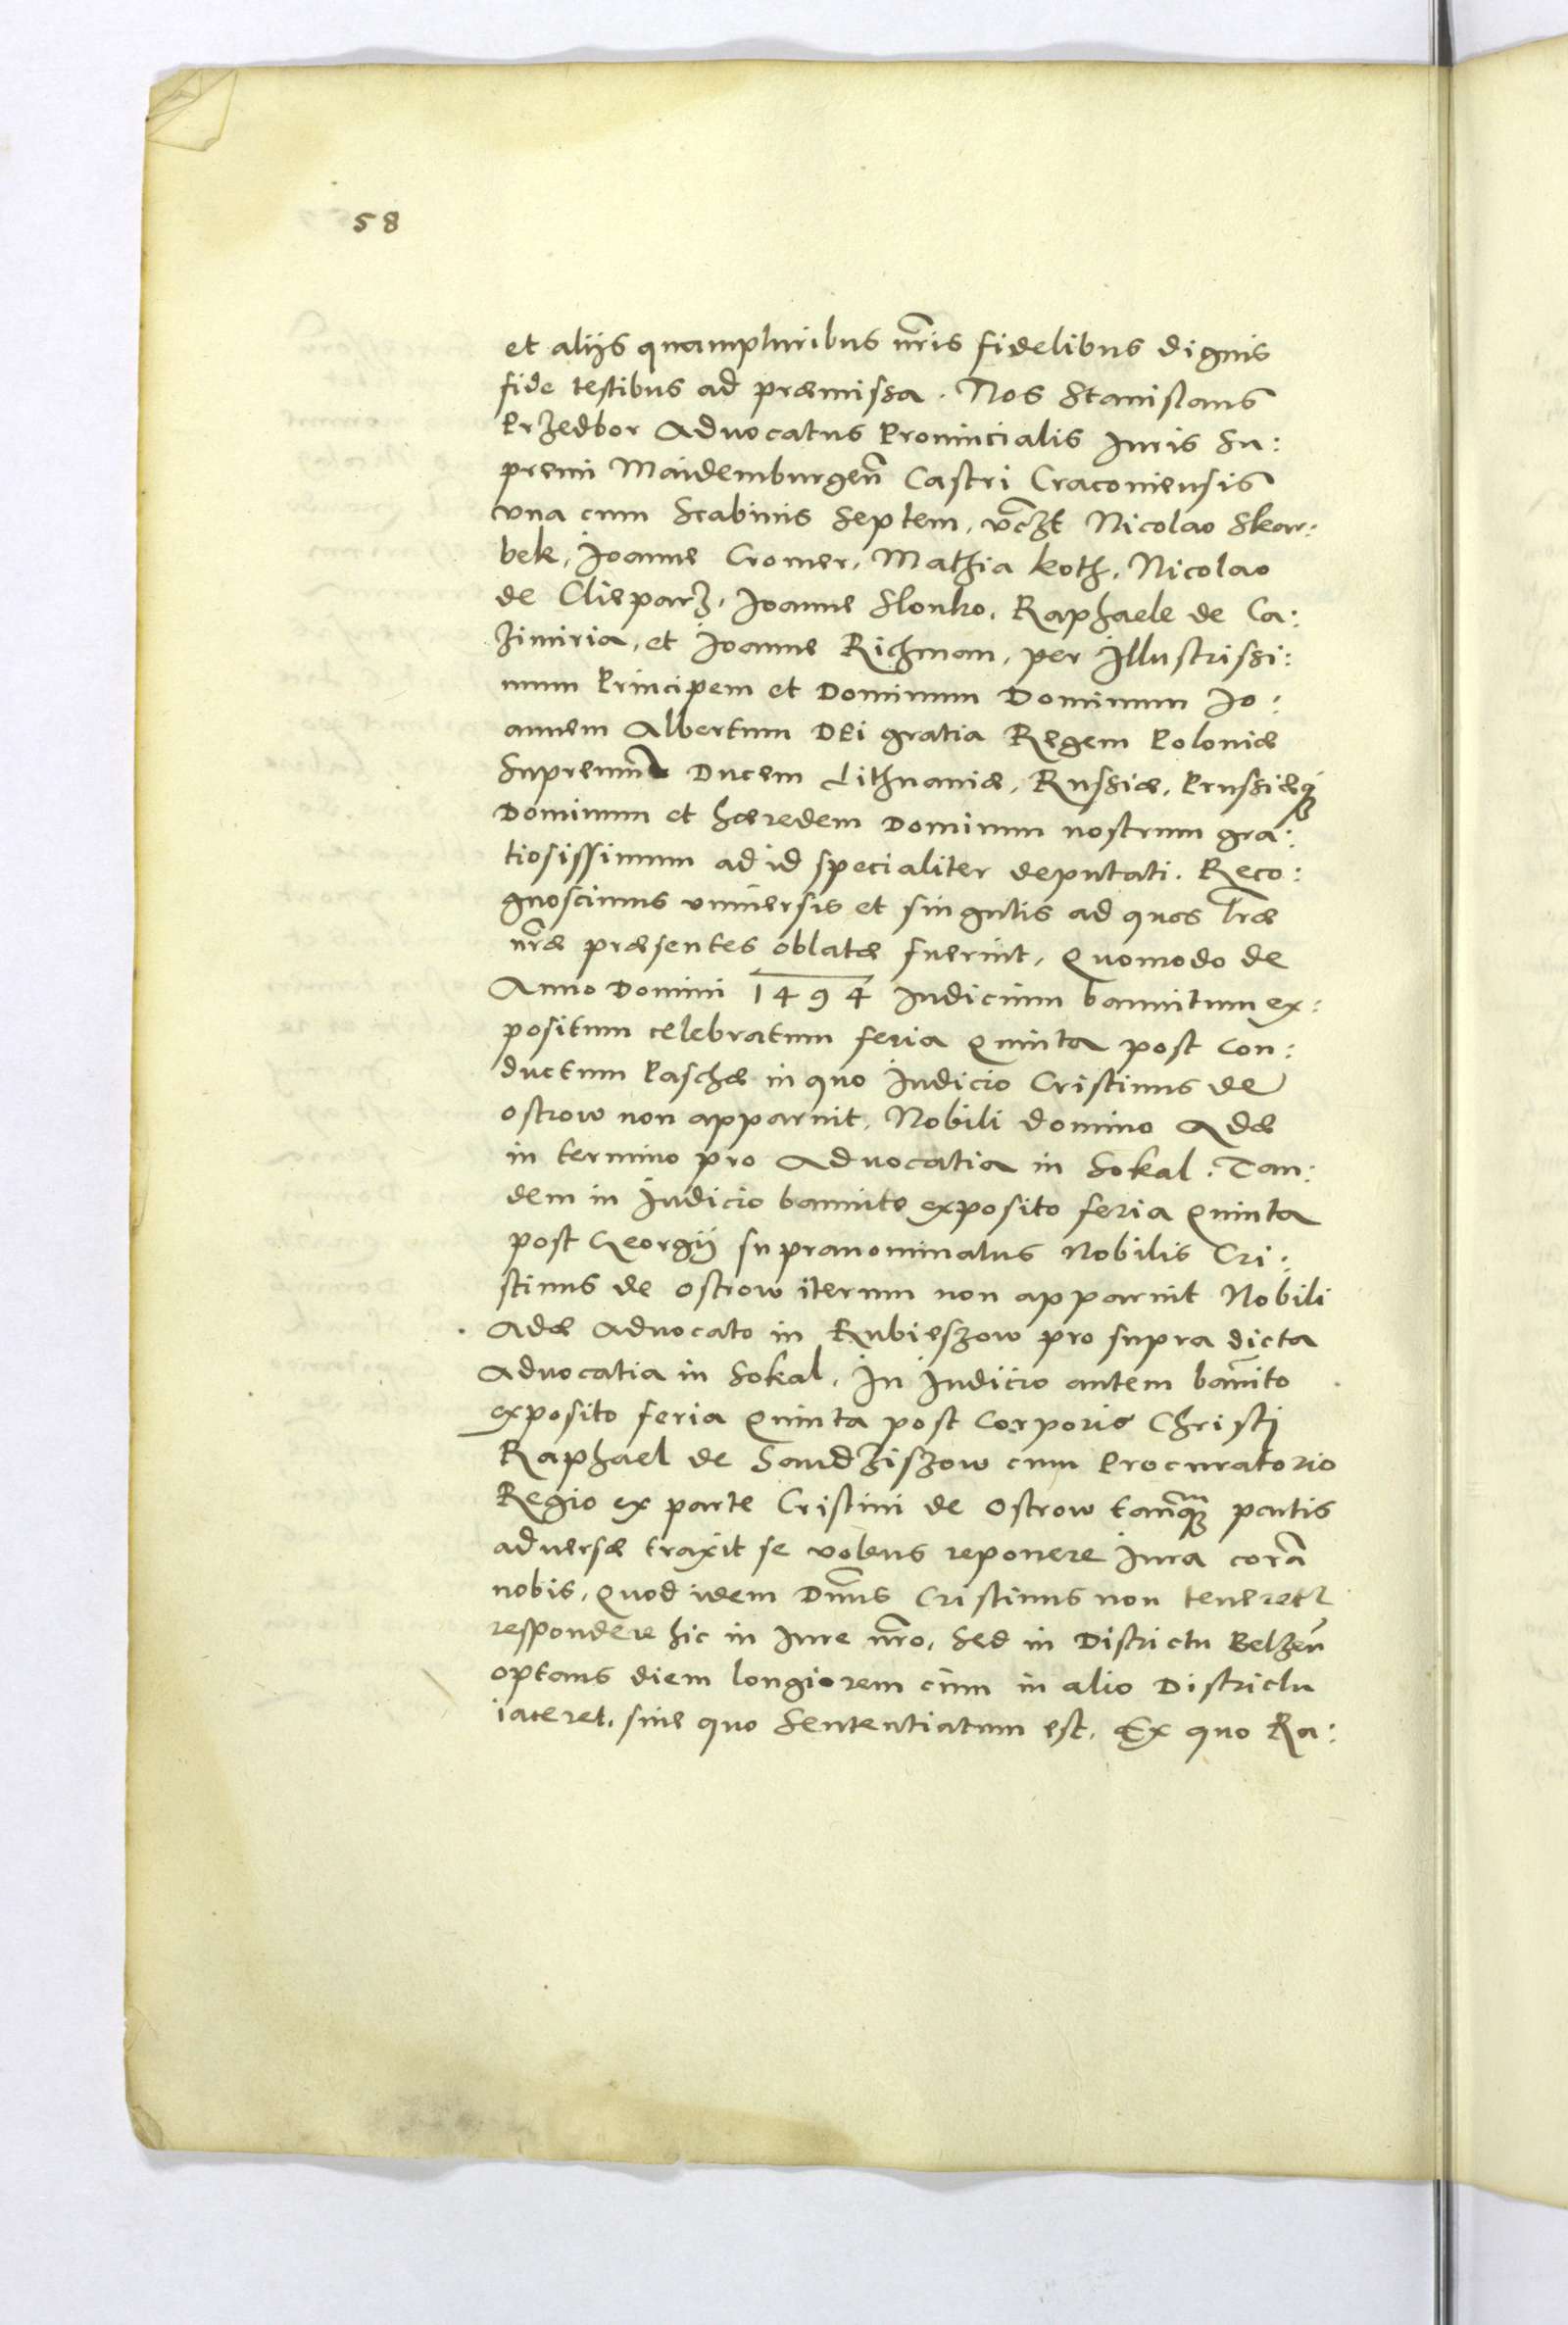 58
et alijs quampluribus nr̃is fidelibus dignis
fide testibus ad præmissa. Nos Stanislaus
Przedbor Advocatus Provincialis Iuris Su:
premi Maidemburgeñ Castri Cracoviensis
vna cum Scabinis Septem, vcz̃t Nicolao Skar:
bek, Joanne Cromer, Mathia Koth, Nicolao
de Clieparz, Joanne Slonko, Raphaele de Ca:
zimiria, et Joanne Richman, per Illustrissi:
mum Principem et Dominum Dominum Jo:
annem Albertum Dei gratia Regem Poloniæ
Supremũ Ducem Lithuaniæ, Russiæ, Prussiæq;
Dominum et hæredem Dominum nostrum gra:
tiosissimum ad id specialiter deputati. Reco:
gnoscimus vniuersis et singulis ad quos lr̃æ
nr̃æ præsentes oblatæ fuerint, Quomodo de
Anno Domini 1494 Iudicium bannitum ex:
positum celebratum feria Quinta post Con:
ductum Paschæ in quo Judicio Cristinus de
ostrow non apparuit, Nobili domino Adæ
in termino pro Advocatia in Sokal. Tan:
dem in Judicio bannito exposito feria Quinta
post Georgij supranominatus Nobilis Cri:
stinus de ostrow iterum non apparuit Nobili
Adæ Advocato in Rubieszow pro supra dicta
Advocatia in Sokal, In Judicio autem bañito
exposito feria Quinta post Corporis Christi
Raphael de Sandziszow cum Procuratorio
Regio ex parte Cristini de Ostrow tanq̃ꝫ partis
adversæ traxit se volens reponere Iura corã
nobis, Quod idem Dñus Cristinus non teneretr
respondere hic in Iure nr̃o, Sed in Districtu Belzeñ
optans diem longiorem cum in alio Districtu
iaceret, sine quo Sententiatum est, Ex quo Ra: